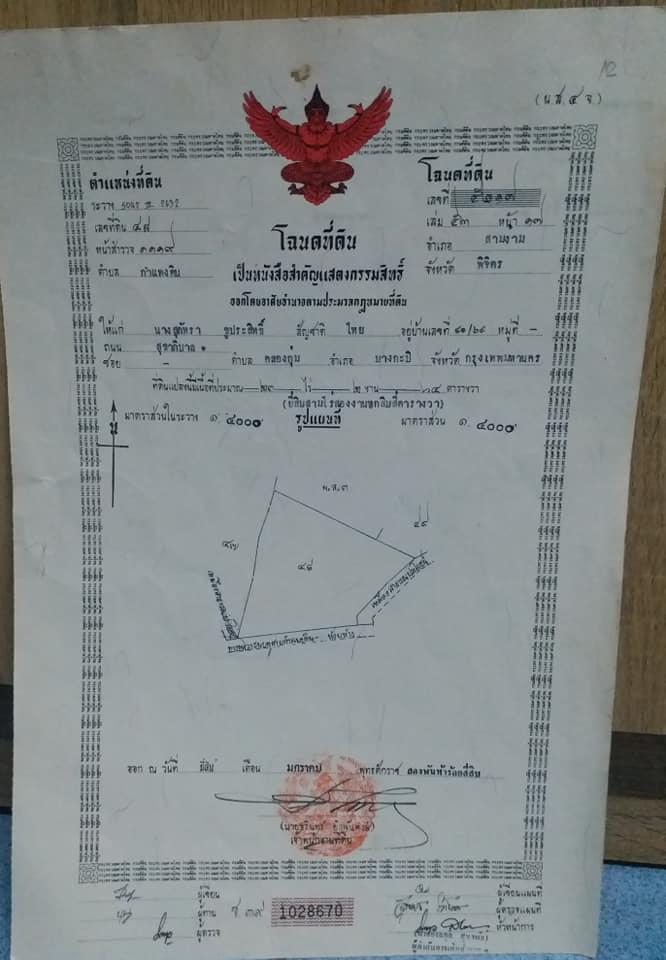 (น.ส.๔ จ.)
ตำแหน่งที่ดิน
ระวาง 5041 II 2432
เลขที่ดิน ๔๘
หน้าสำรวจ ๑๑๑๙
ตำบล กำแพงดิน
โฉนดที่ดิน
เลขที่
เล่ม ๕๓ หน้า ๑๗
อำเภอ สามง่าม
จังหวัด พิจิตร
โฉนดที่ดิน
เป็นหนังสือสำคัญแสดงกรรมสิทธิ์
ออกโดยอาศัยอำนาจตามประมวลกฎหมายที่ดิน
ให้แก่ นางสุภัทรา ชูประสิทธิ์ สัญชาติ ไทย อยู่บ้านเลขที่ ๔๐/๖๙ หมู่ที่ -
ถนน สุขาภิบาล ๑
ซอย - ตำบล คลองกุ่ม อำเภอ บางกะปิ จังหวัด กรุงเทพมหานคร
ที่ดินแปลงนี้มีเนื้อที่ประมาณ ๒๓ ไร่ ๒ งาน ๖๔ ตารางวา
(ยี่สิบสามไร่สองงานหกสิบสี่ตารางวา)
มาตราส่วนในระวาง ๑: ๔๐๐๐ รูปแผนที่ มาตราส่วน ๑: ๔๐๐๐
น.ส.๓
๔๙
๔๗
๔๘
ออก ณ วันที่ ยี่สิบ เดือน มกราคม พุทธศักราช สองพันห้าร้อยสี่สิบ
เจ้าพนักงานที่ดิน
ผู้เขียน
ผู้ทาน
ผู้ตรวจ
ช ๓๙ 1028670
ผู้เขียนแผนที่
ผู้ตรวจแผนที่
หัวหน้าการ